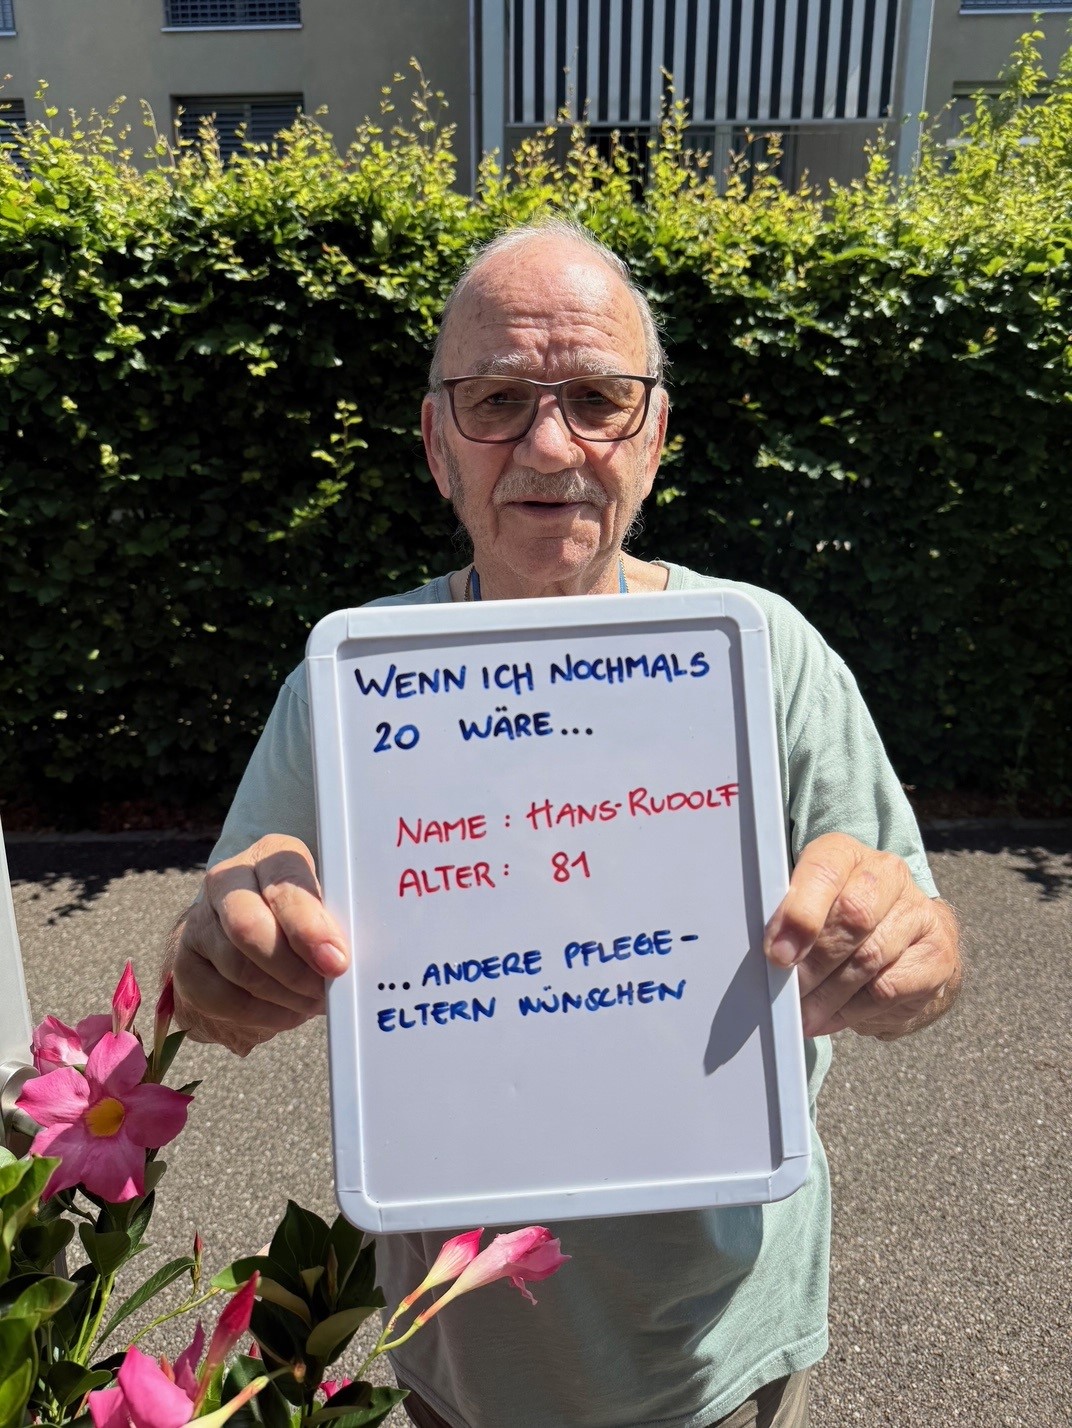 WENN ICH NOCHMALS
20 WÄRE...
NAME: HANS-RUDOLF
ALTER: 81
...ANDERE PFLEGE-
ELTERN WÜNSCHEN